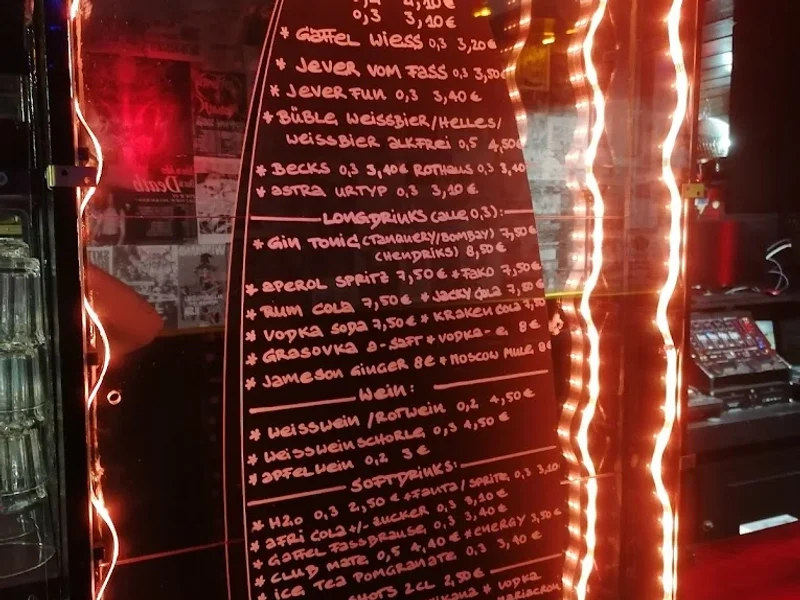 0,3 3,10€
* Gaffel Wiess 0,3 3,20€
* Jever vom Fass 0,3 3,50€
* Jever Fun 0,3 3,40€
* Büble Weissbier/Helles/
Weissbier alkfrei 0,5 4,50€
* Becks 0,3 3,40€ Rothaus 0,3 3,40
* Astra Urtyp 0,3 3,10€
Longdrinks (alle 0,3):
* Gin Tonic (Tanquery/Bombay) 7,50€
(Hendriks) 8,50€
* Aperol Spritz 7,50€ * Fako 7,50€
* Rum Cola 7,50€ * Jacky Cola 7,50€
* Vodka Soda 7,50€ * Kraken Cola 7,50
* Grasovka a-saft * Vodka-e 8€
* Jameson Ginger 8€ * Moscow Mule 8€
Wein:
* Weisswein/Rotwein 0,2 4,50€
* Weissweinschorle 0,3 4,50€
* Apfelwein 0,2 3€
Softdrinks:
* H2O 0,3 2,50€ * Fanta/Sprite 0,3 3,10
* Afri Cola +/- Zucker 0,3 3,10€
* Gaffel Fassbrause 0,3 3,40€
* Club Mate 0,5 4,10€ * Energy 3,50€
* Ice Tea Pomgranate 0,3 3,40€
Shots 2cl 2,50€
* Vodka
Death